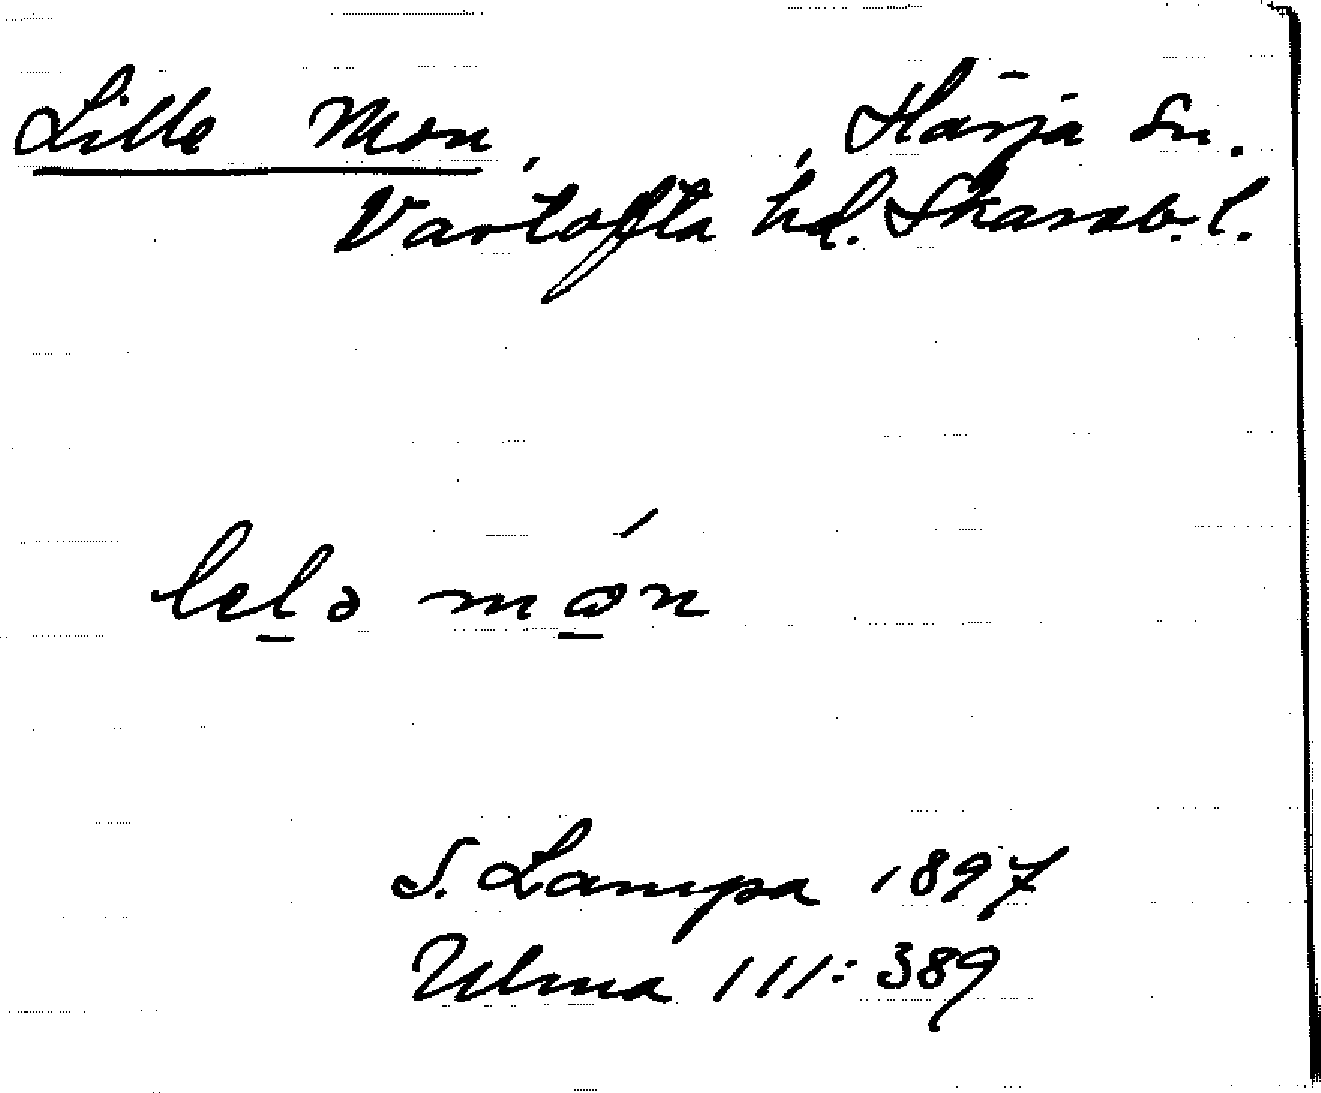 Lille Mon, Härja sn.
Vartofta hd. Skarab. l.
lelə mon
S. Lampa 1897
Ulma 111:389